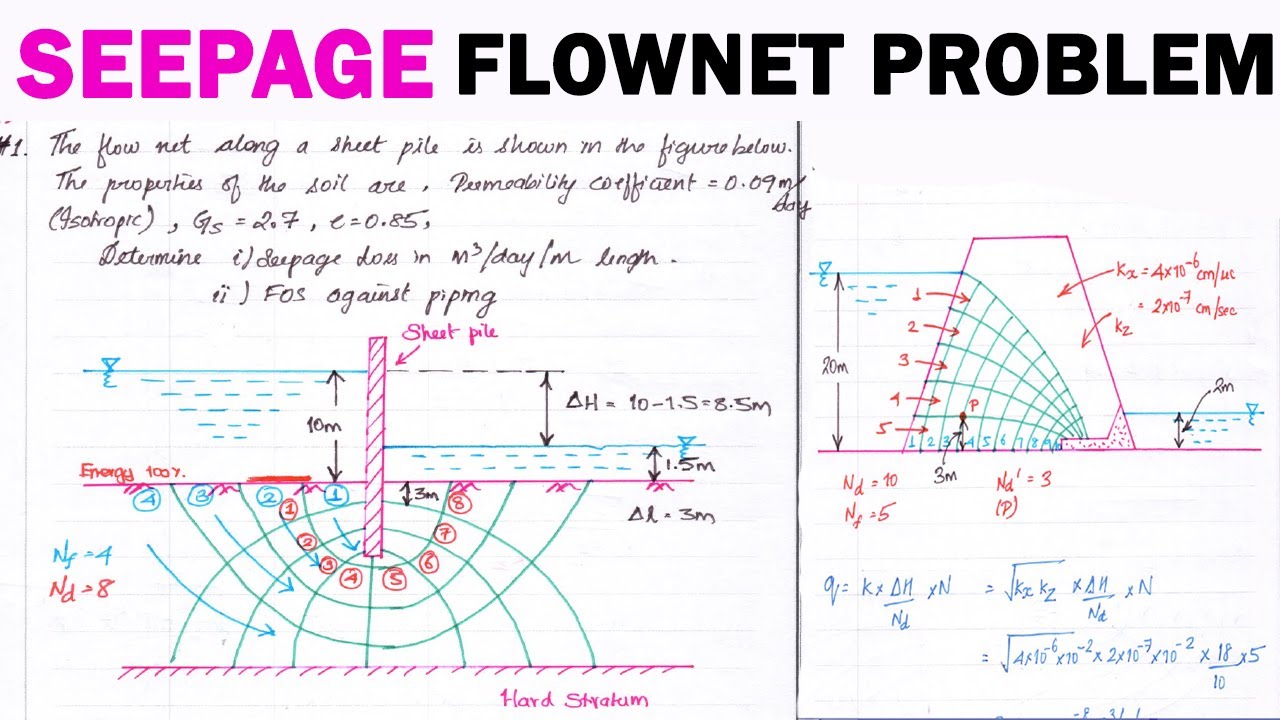 SEEPAGE FLOWNET PROBLEM
#1. The flow net along a sheet pile is shown in the figure below.
The properties of the soil are, Permeability coefficient = 0.09 m/day
(Isotropic), Gs = 2.7, e = 0.85,
Determine i) Seepage loss in m³/day/m length.
ii) FOS against piping
Sheet pile
10m
ΔH = 10-1.5 = 8.5m
1.5m
Energy 100%
4 3 2 1
3m
Δl = 3m
1 2 3 4 5 6 7 8
Nf = 4
Nd = 8
Hard Stratum
kx = 4×10⁻⁶ cm/sec
= 2×10⁻⁷ cm/sec
kz
20m
2m
1
2
3
4
5
P
1 2 3 4 5 6 7 8 9
3m
Nd = 10
Nf = 5
Nd' = 3
(P)
q = K × ΔH/Nd × N = √kx kz × ΔH/Nd × N
= √4×10⁻⁶×10⁻²×2×10⁻⁷×10⁻² × 18/10 × 5